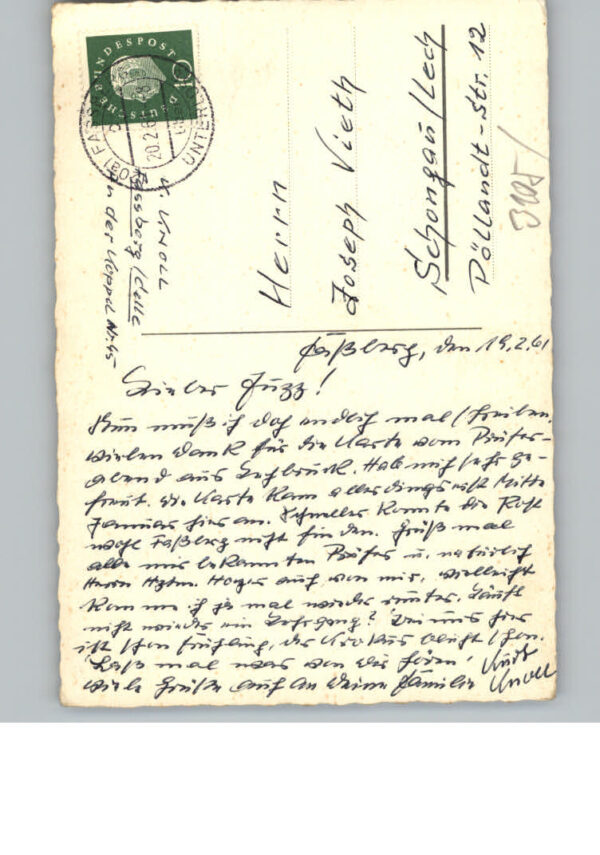 DEUTSCHE BUNDESPOST
10
(20a) FASSBERG
20.2.61
UNTERL
K. Knoll
Fassberg/Celle
An der Koppel Nr. 45
Herrn
Joseph Vieth
Schongau/Lech
Pöllandt-Str. 12
3105/
Faßberg, den 19.2.61
Lieber Juzz!
Nun muß ich doch endlich mal schreiben.
Vielen Dank für die Karte vom Prüfer-
abend aus Lechbruck. Hab mich sehr ge-
freut. Die Karte kam allerdings erst Mitte
Januar hier an. Schneller konnte die Post
wohl Faßberg nicht finden. Grüß mal
alle mir bekannten Prüfer u. natürlich
Herrn Hptm. auch von mir. Vielleicht
komme ich ja mal wieder runter. Läuft
nicht wieder ein Lehrgang? Bei uns hier
ist schon Frühling, der Krokus blüht schon.
Laß mal was von Dir hören!
Viele Grüße auch an Deine Familie Kurt
Knoll